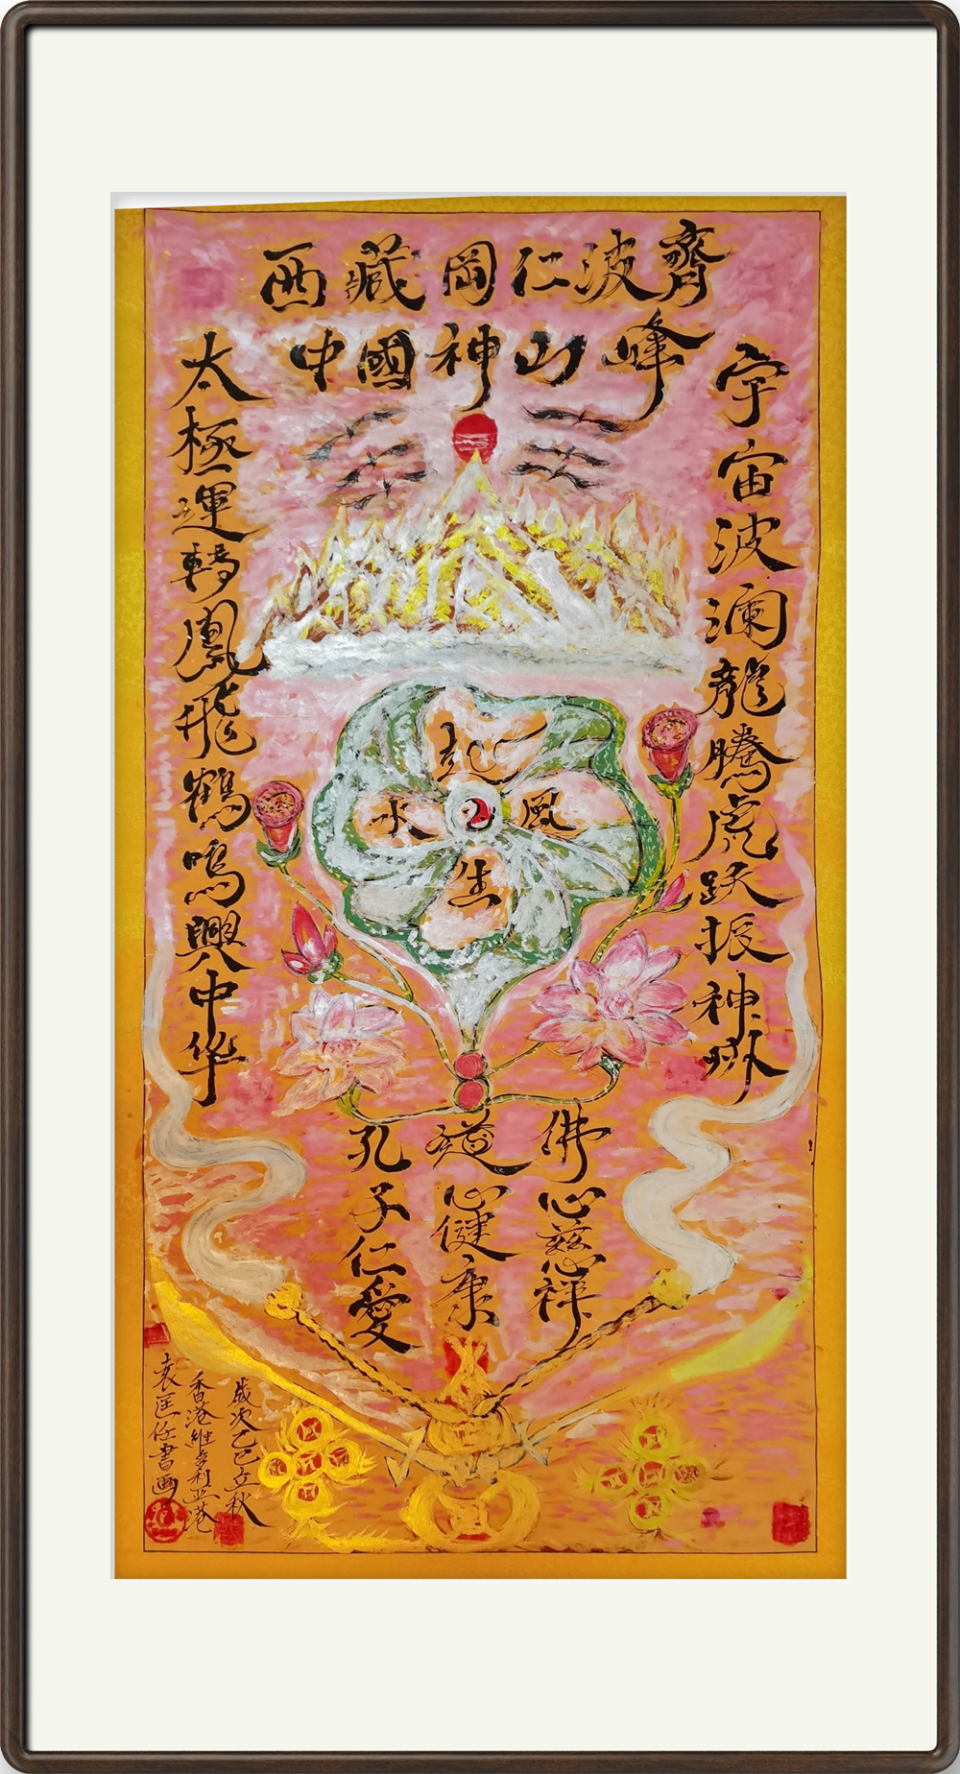 西藏岡仁波齊
中國神山峰
宇宙波瀾龍騰虎跃振神州
太極運轉鳳飛鶴鳴興中华
風
生
水
起
佛心慈祥
道心健康
孔子仁愛
歲次乙巳立秋
香港維多利亞港
袁匡任書画